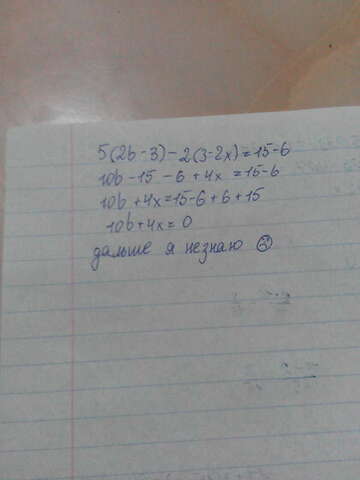 5(2b-3)-2(3-2x)=15-6
10b-15-6+4x=15-6
10b+4x=15-6+6+15
10b+4x=0
дальше я незнаю ☹